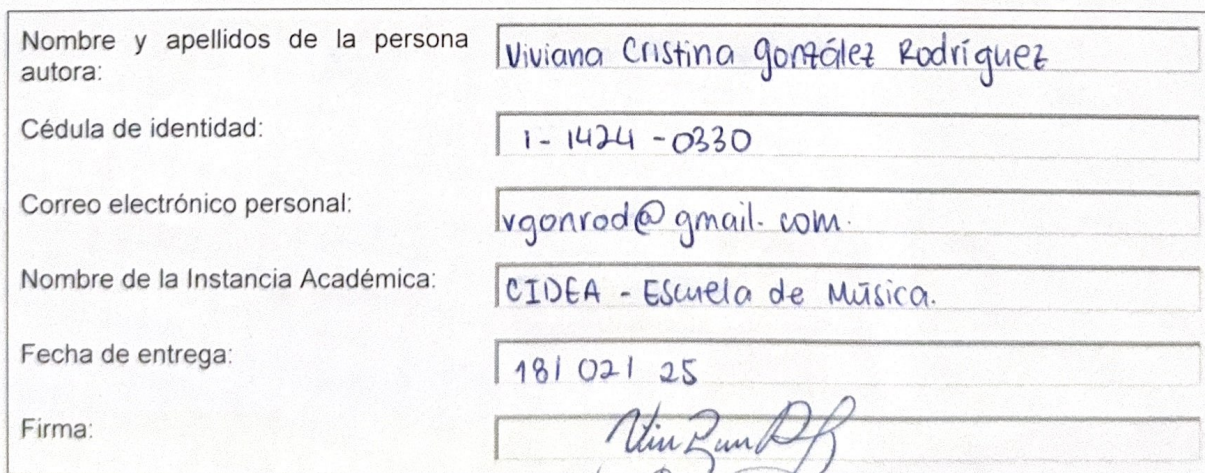 Nombre y apellidos de la persona autora: Viviana Cristina González Rodríguez
Cédula de identidad: 1-1424-0330
Correo electrónico personal: vgonrod@gmail.com.
Nombre de la Instancia Académica: CIDEA - Escuela de Música.
Fecha de entrega: 18/02/25
Firma: